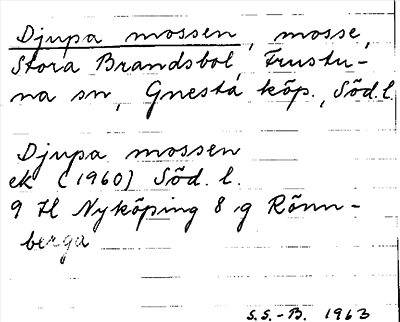 Djupa mossen, mosse,
Stora Brandsbol, Frustu-
na sn, Gnesta köp., Söd. l.
Djupa mossen
ek (1960) Söd. l.
9 H Nyköping 8 g Rönn-
berga
S.S.-B. 1963